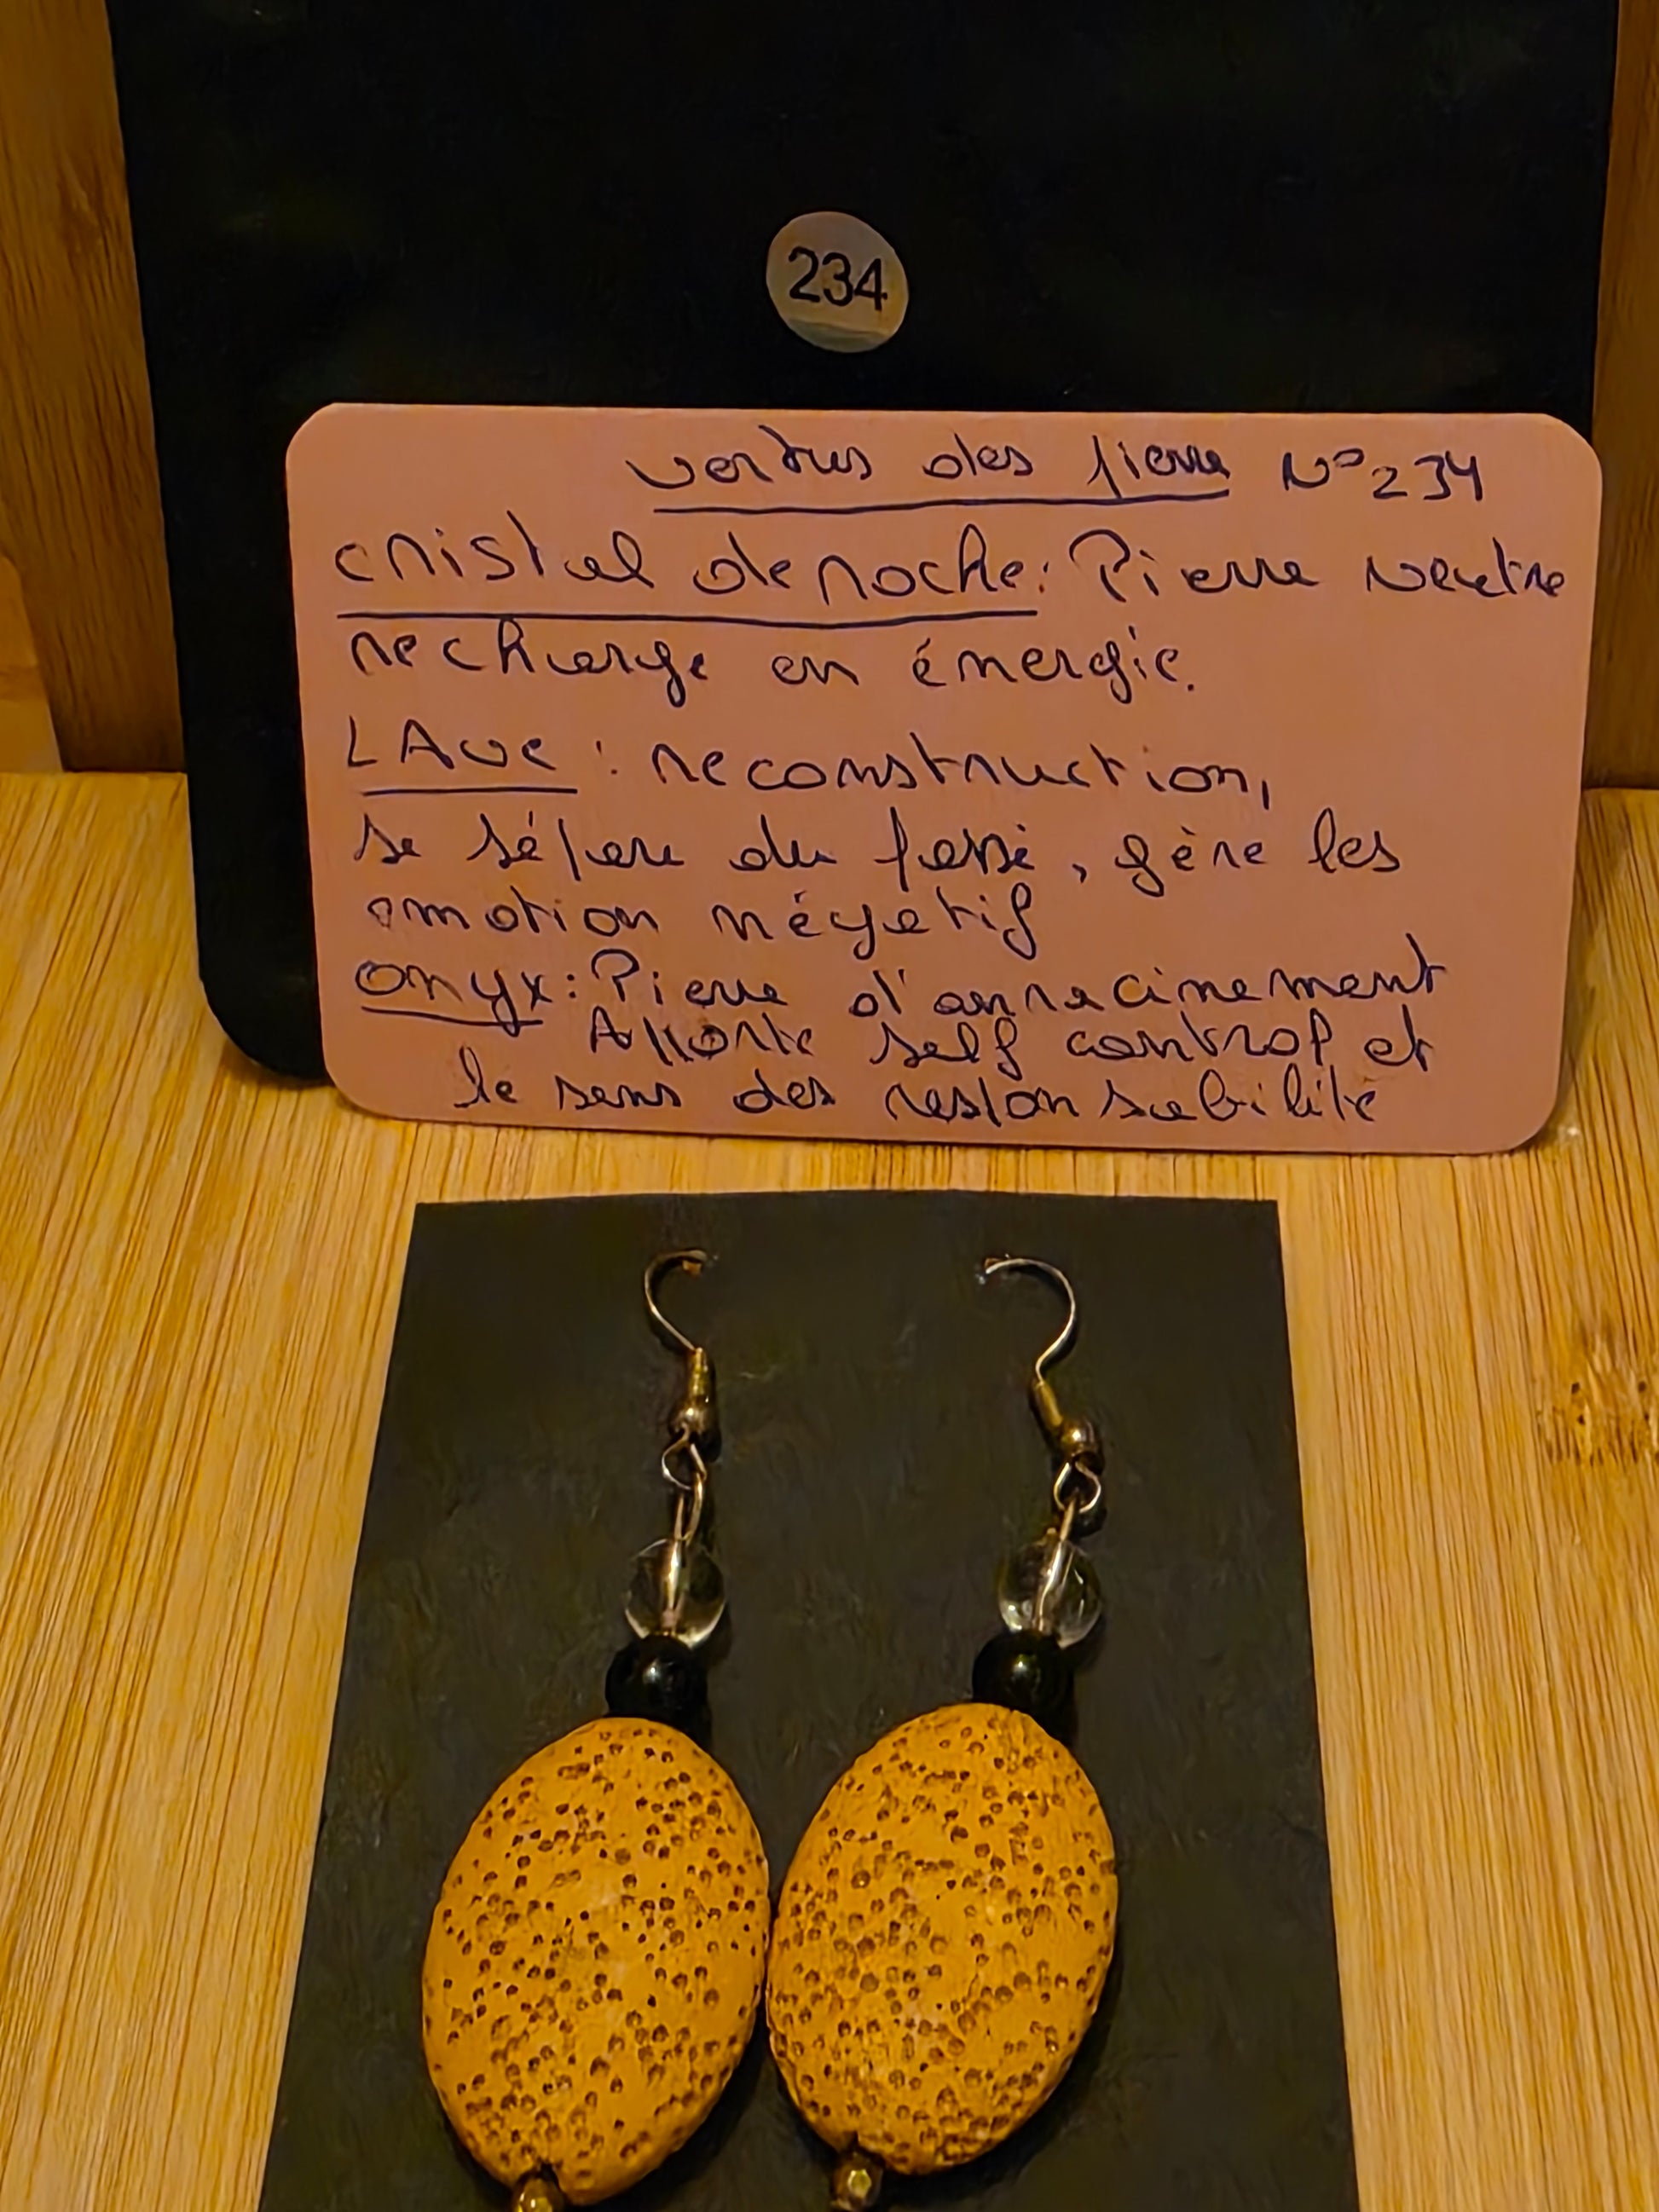 234
vertus des pierre N° 234
cristal de roche : Pierre Neutre
recharge en énergie.
LAve : reconstruction,
se sépare du passé, gère les
émotion négatif
onyx : Pierre d'anracinement
Apporte self control et
le sens des responsabilité